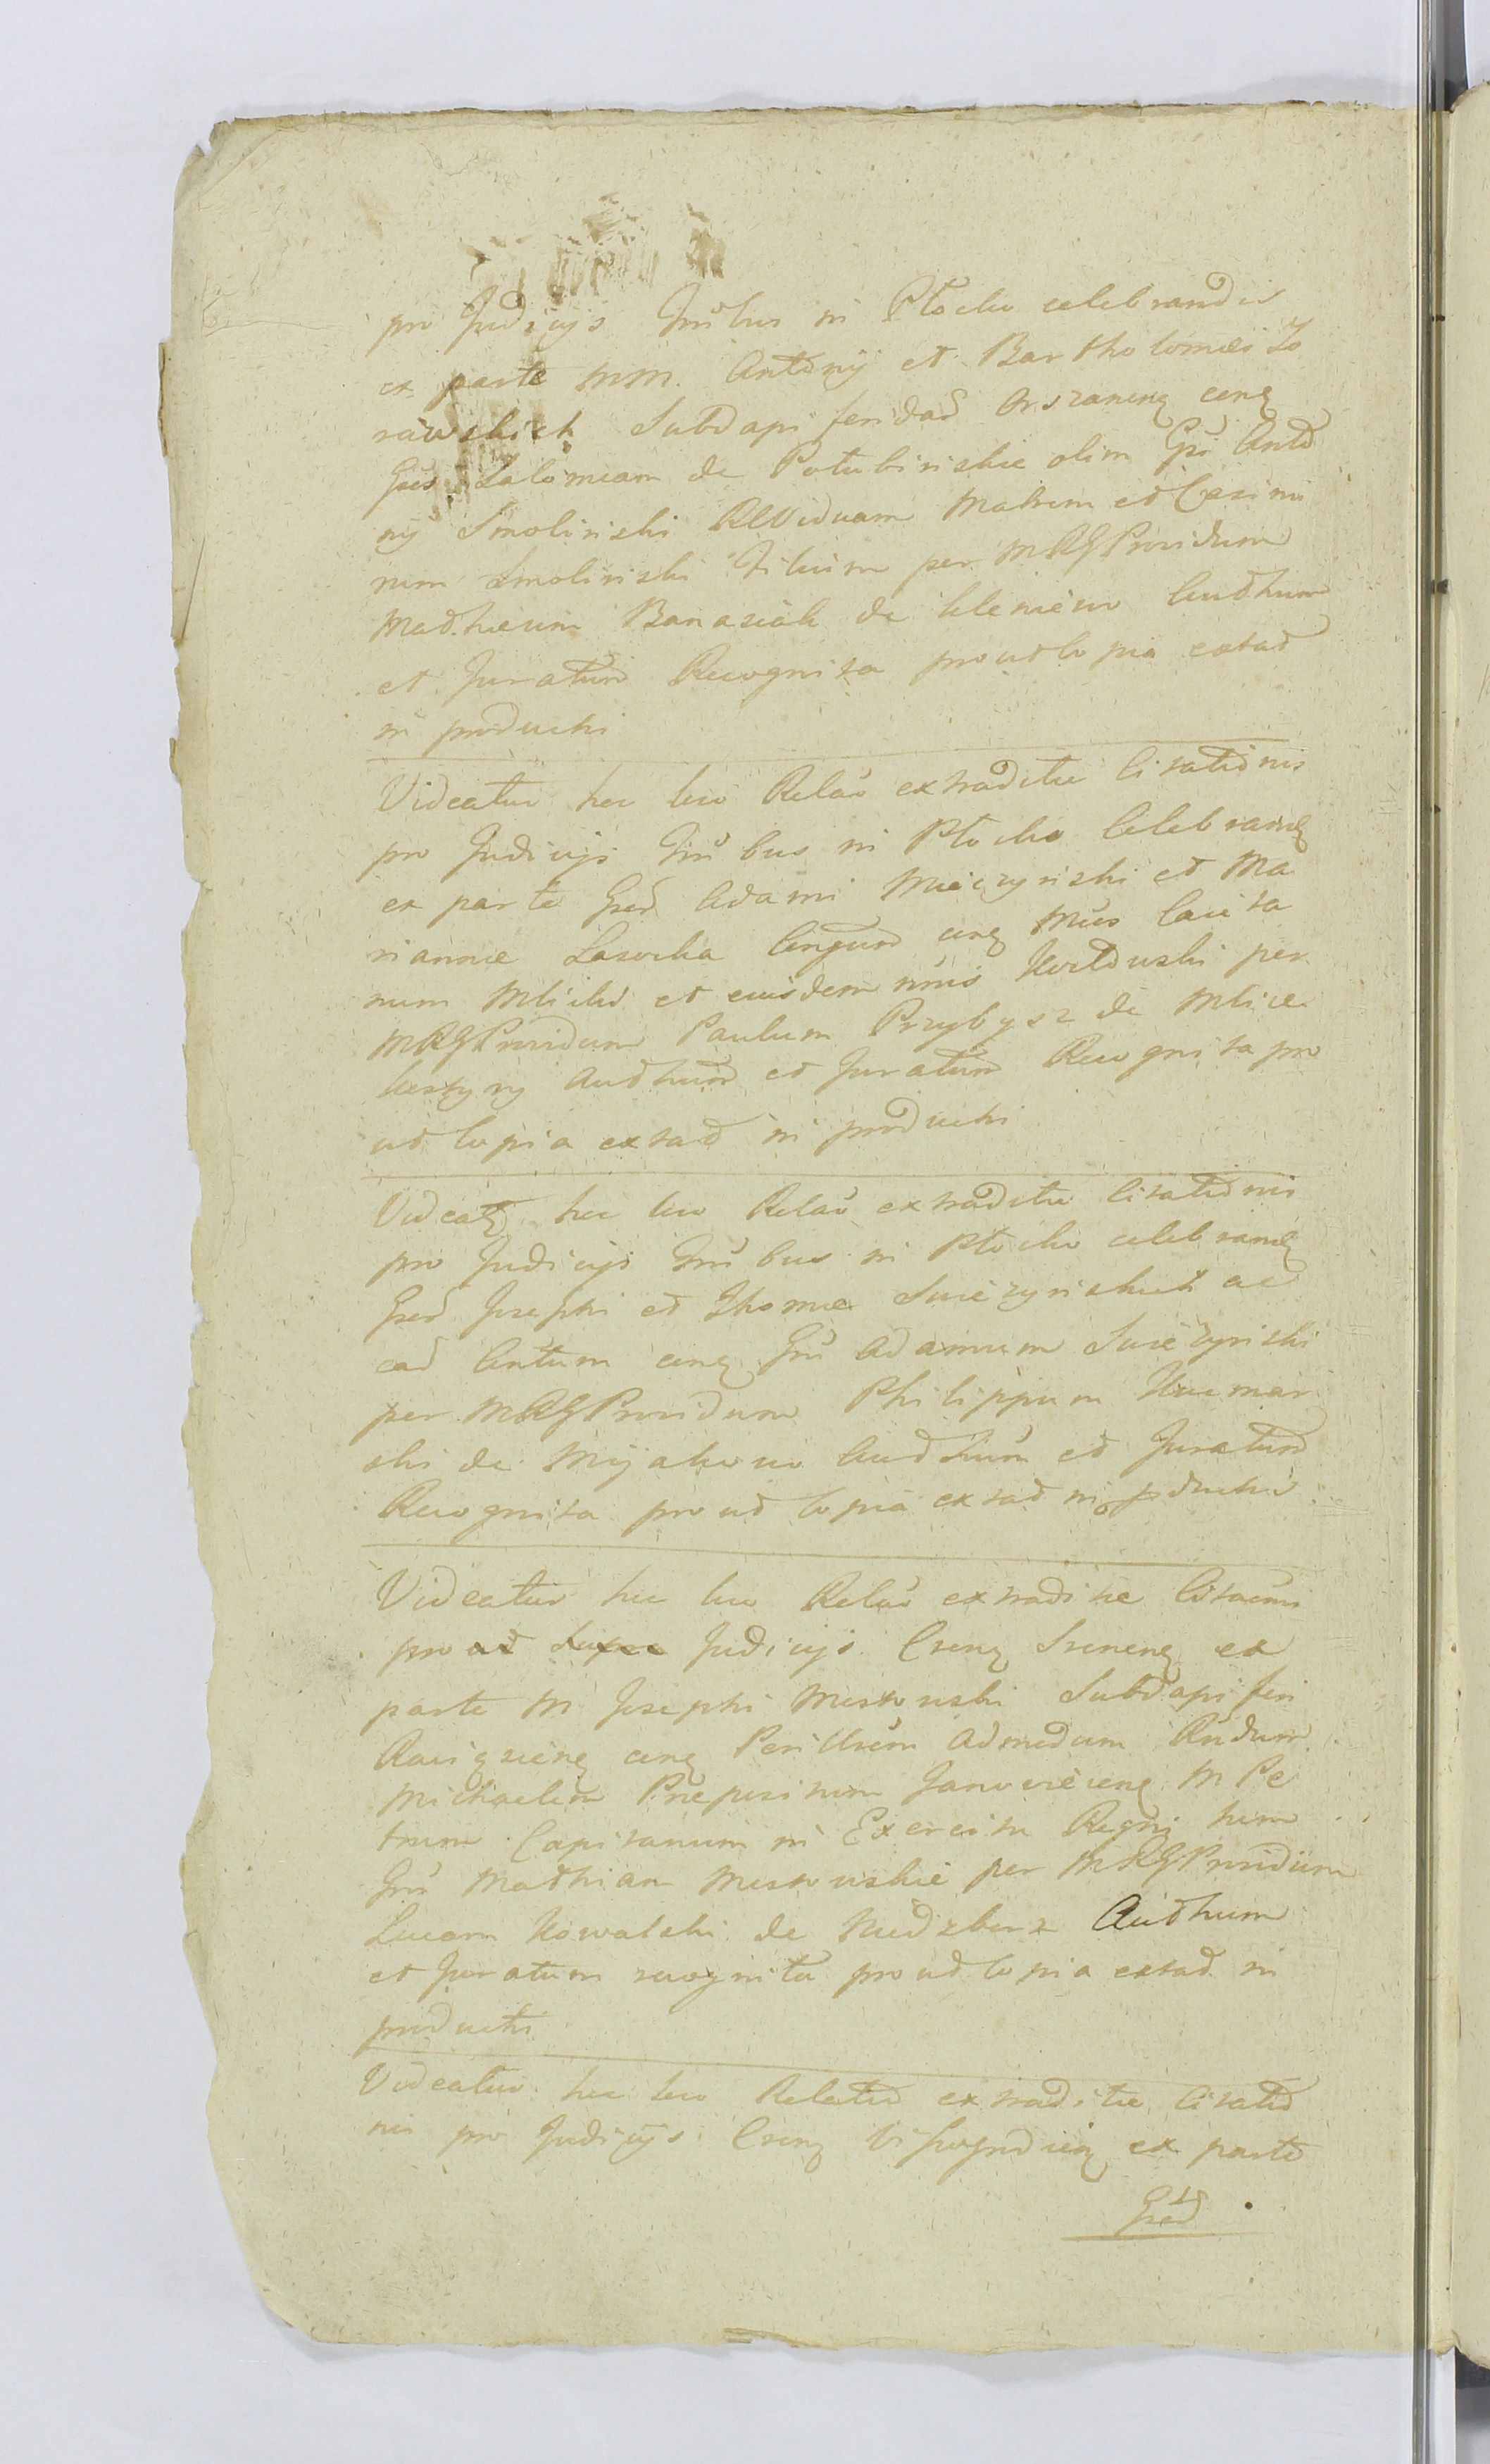 pro Judicijs Grnibus in Płocko celebrandis
ex parte MM. Antonij et Bartholomei Zo
rawskich Subdapiferidar Orszanens ctra
Gsos Salomeam de Potubinskie olim Gsi Anto
nij Smolinski Rlt Viduam Matrem et Casimi
rum Smolinski Filium per MRG Providum
Mathæum Banasiak de Kleniewo Authum
et Juratum Recognita prout Copia extat
in producti
Videatur hic loco Relao extraditæ Citationis
pro Judicijs Grnibus in Płocko Celebrands
ex parte Gsor Adami Mieczynski et Ma
riannæ Lasocka Conjgum ctra
num Mlicki et eiusdem Kosłowski per
MRG Providum Paulum Przybysz de Mlice
Kostyny Authum et Juratum Recognita pro
ut Copia extat in producti
Videatr hic loco Relao extraditæ Citationis
pro Judicijs Grnibus in Płocko celebrands
Gsor Josephi et Thomæ Swiezynskich ac
ead Actum ctra Gsum Adamum Swiezynski
per MRG Providum Philippum Kuczmar
ski de Mijakowo Authum et Juratum
Recognita prout Copia extat in producti
Videatur hic loco Relao extraditæ Citaonis
pro Judicijs Csens Srenens ex
parte M Josephi Mostowski Subdapiferi
Raciązens ctra Perillrem Admodum Rndum
Michaelem Præpositum M Pe
trum Capitanum in Exercitu Regni tum
Gsum Mathiam Mostowskie per MRG Providum
Lucam Kowalski de Niedzborz Authum
et Juratum recognita prout Copia extat in
producti
Videatur hic loco Relatio extraditæ Citatio
nis pro Judicijs Csens Wyszogrodiens ex parte
Gsor